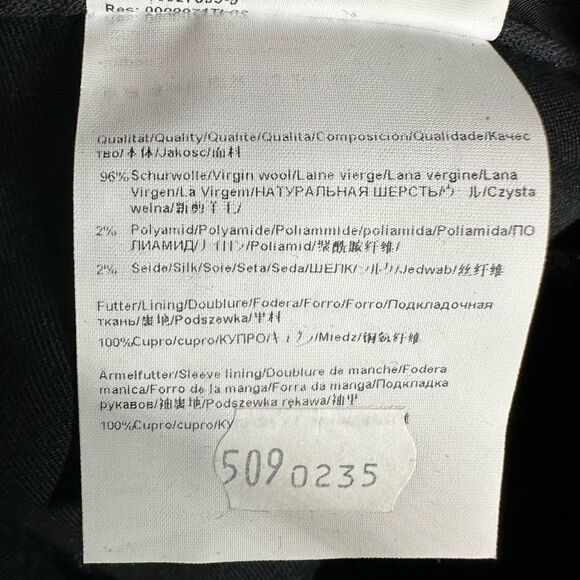 Qualität/Quality/Qualite/Qualita/Composicion/Qualidade/Качес
тво/本体/Jakosc/面料
96% Schurwolle/Virgin wool/Laine vierge/Lana vergine/Lana
Virgen/La Virgem/НАТУРАЛЬНАЯ ШЕРСТЬ/ウール/Czysta
welna/新剪羊毛/
2% Polyamid/Polyamide/Poliammide/poliamida/Poliamida/ПО
ЛИАМИД/ナイロン/Poliamid/聚酰胺纤维/
2% Seide/Silk/Soie/Seta/Seda/ШЕЛК/シルク/Jedwab/丝纤维
Futter/Lining/Doublure/Fodera/Forro/Forro/Подкладочная
ткань/裏地/Podszewka/里料
100%Cupro/cupro/КУПРО/キュプラ/Miedz/铜氨纤维
Armelfutter/Sleeve lining/Doublure de manche/Fodera
manica/Forro de la manga/Forra da manga/Подкладка
рукавов/袖裏地/Podszewka rękawa/袖里
100%Cupro/cupro/КУ
509 0235